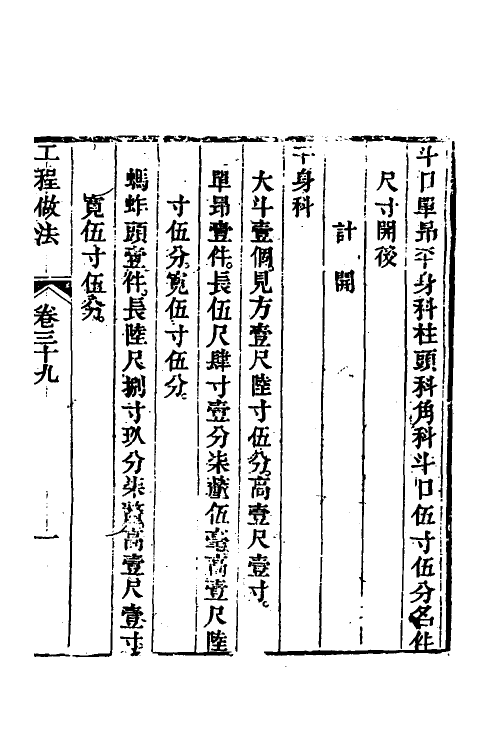 斗口單昂平身科柱頭科角科斗口伍寸伍分名件
尺寸開後
計開
平身科
大斗壹個見方壹尺陸寸伍分高壹尺壹寸
單昂壹件長伍尺肆寸壹分柒釐伍毫高壹尺陸
寸伍分寬伍寸伍分
螞蚱頭壹件長陸尺捌寸玖分柒釐高壹尺壹寸
寬伍寸伍分
工程做法 卷三十九 一